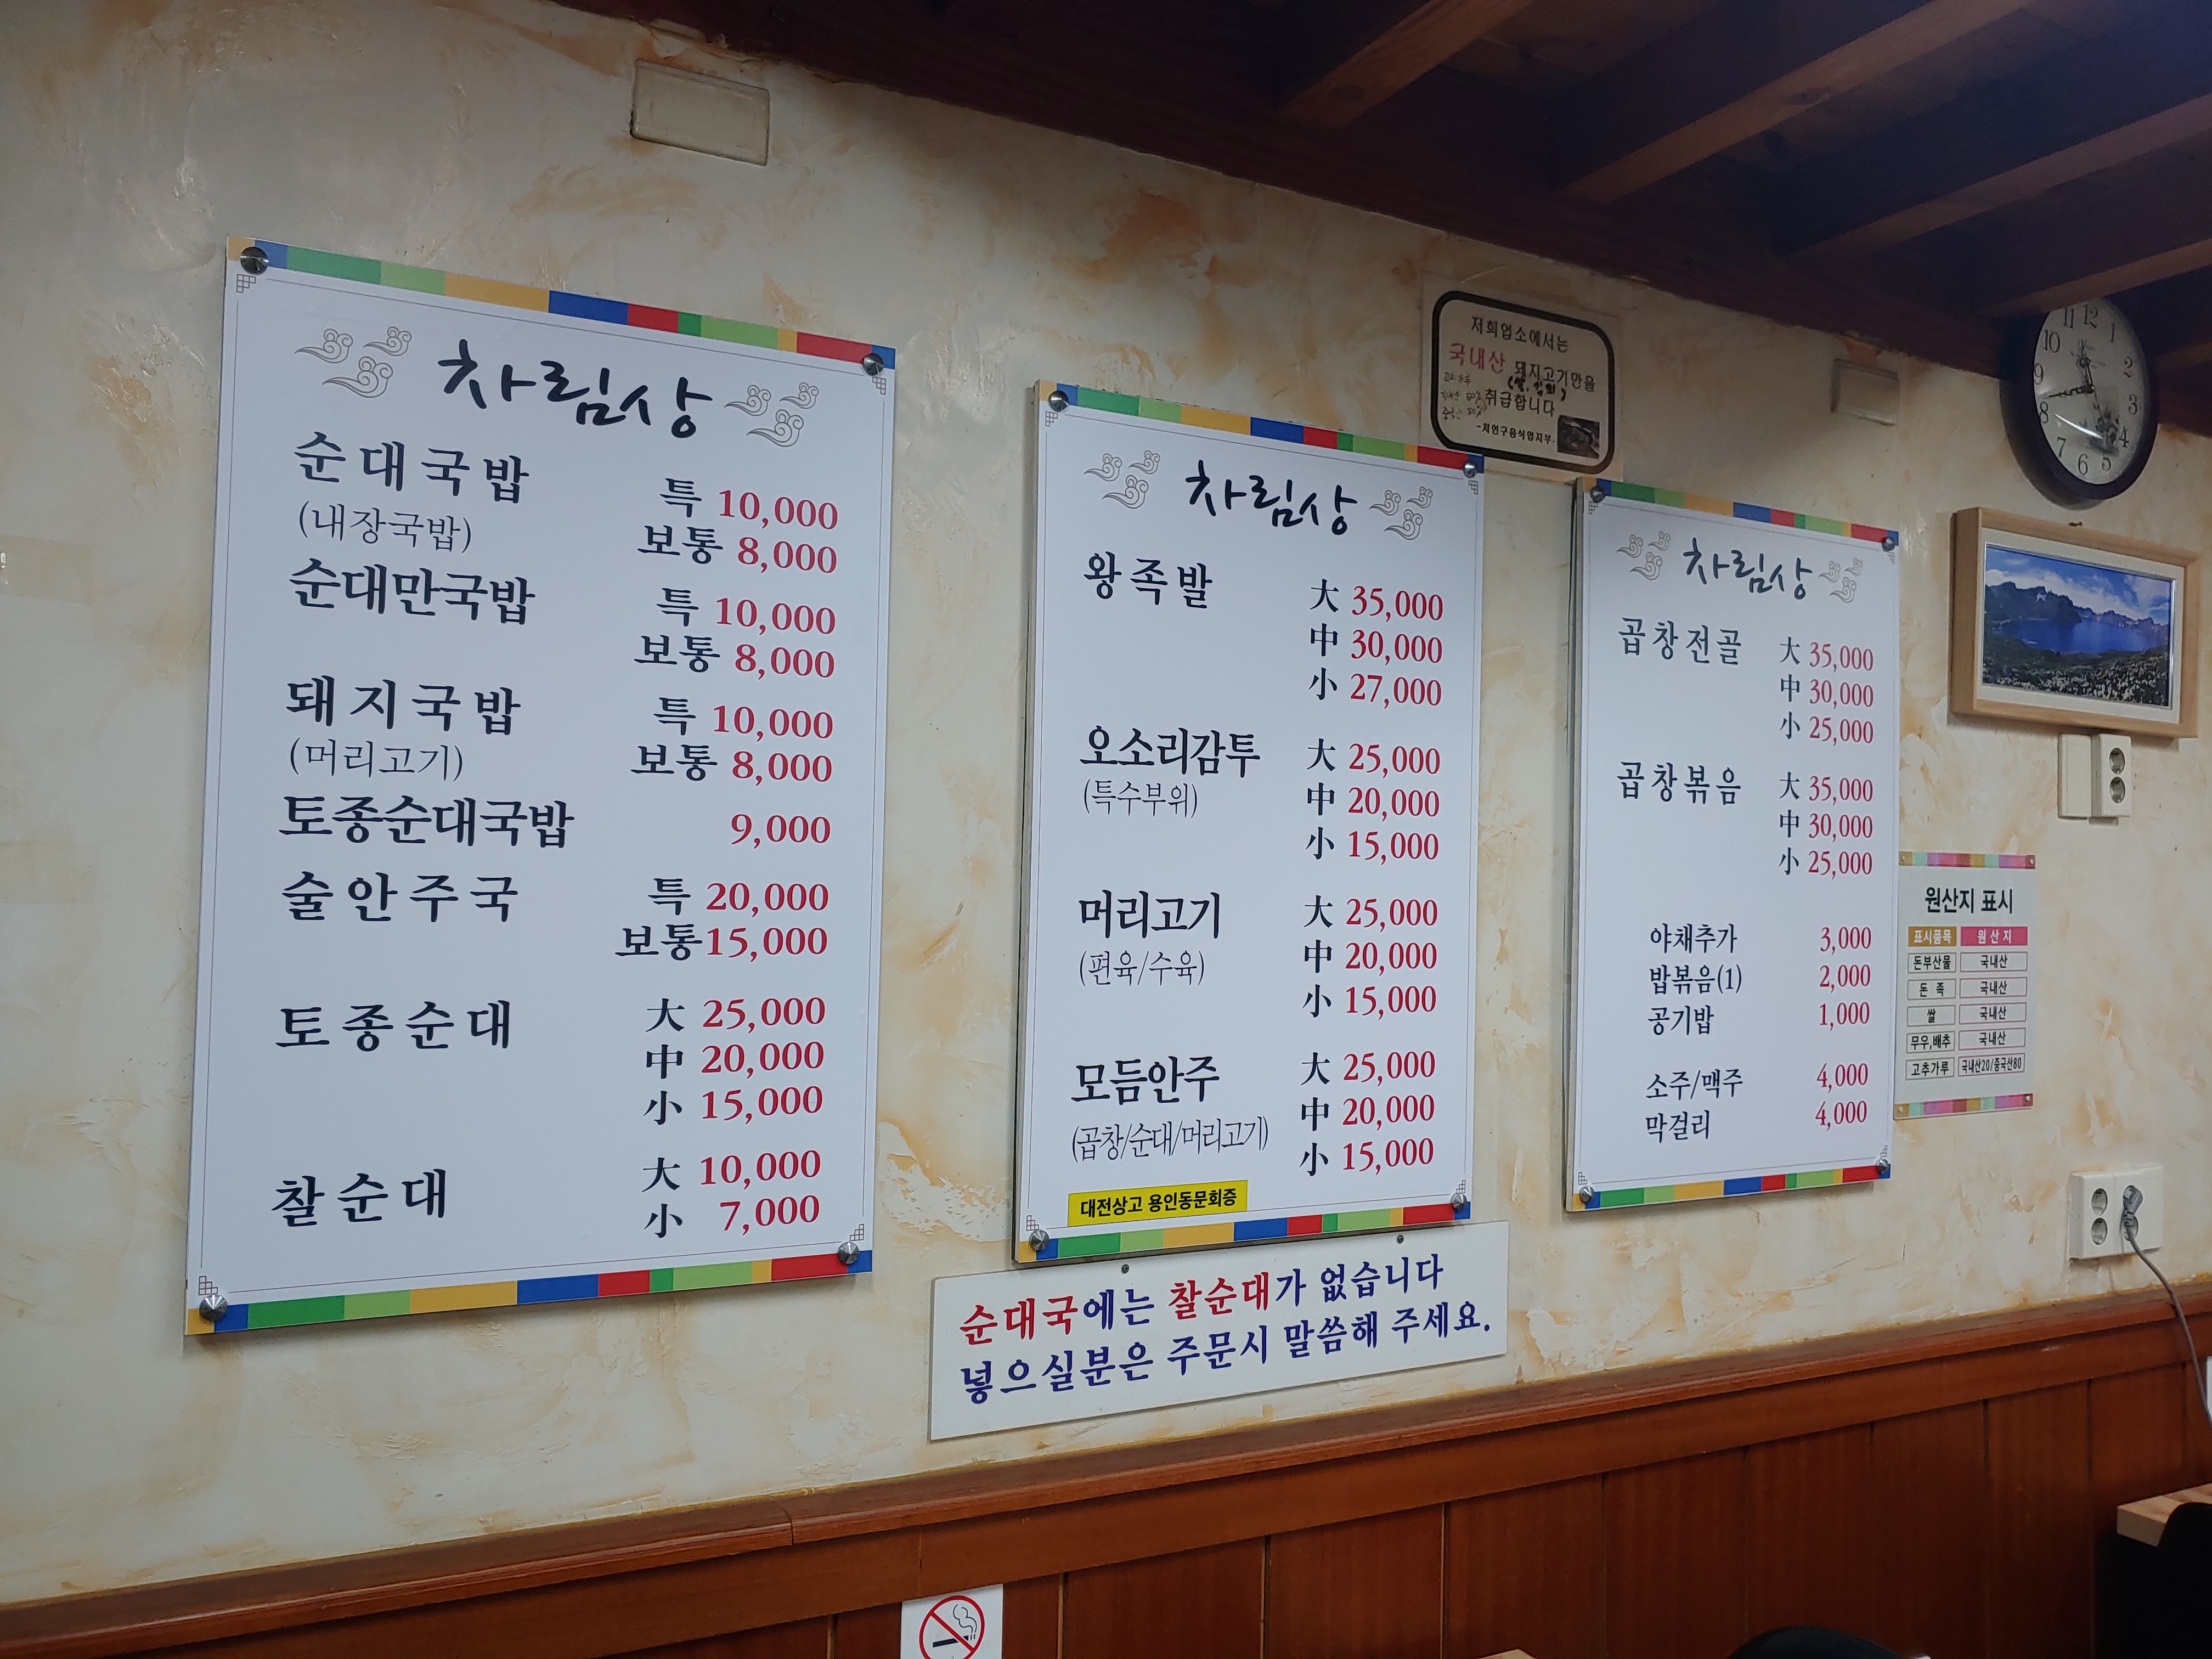 차림상
순대국밥
(내장국밥)
특 10,000
보통 8,000
순대만국밥
특 10,000
보통 8,000
돼지국밥
(머리고기)
특 10,000
보통 8,000
토종순대국밥 9,000
술안주국
특 20,000
보통 15,000
토종순대
大 25,000
中 20,000
小 15,000
찰순대
大 10,000
小 7,000
차림상
왕족발
大 35,000
中 30,000
小 27,000
오소리감투
(특수부위)
大 25,000
中 20,000
小 15,000
머리고기
(편육/수육)
大 25,000
中 20,000
小 15,000
모듬안주
(곱창/순대/머리고기)
大 25,000
中 20,000
小 15,000
대전상고 용인동문회증
순대국에는 찰순대가 없습니다
넣으실분은 주문시 말씀해 주세요.
저희업소에서는
국내산 돼지고기만을
취급합니다
차림상
곱창전골
大 35,000
中 30,000
小 25,000
곱창볶음
大 35,000
中 30,000
小 25,000
야채추가 3,000
밥볶음(1) 2,000
공기밥 1,000
소주/맥주 4,000
막걸리 4,000
원산지 표시
표시품목 원산지
돈부산물 국내산
돈족 국내산
쌀 국내산
무우,배추 국내산
고추가루 국내산20/중국산80
11 12 1
10 2
9 3
8 4
7 6 5